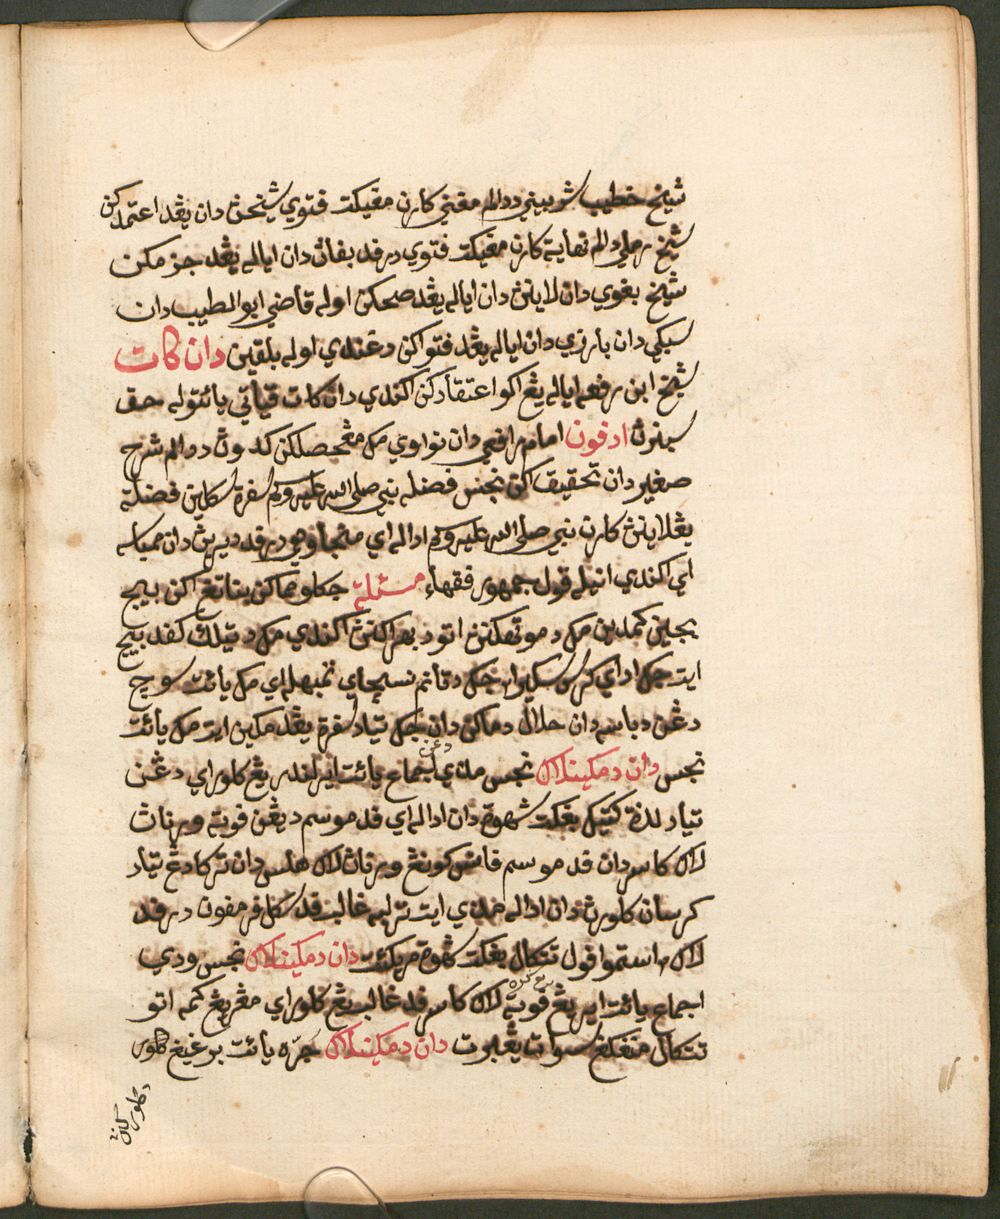 شيخ خطيب شربيني ددالم مغني كارن مڠيكت فتوي شيخڽ دان يڠد اعتمدكن
شيخ رملي دالم نهاية كارن مڠيكت فتوي درفد بفاڽ دان اياله يڠد جزمكن
شيخ بغوي دان لاينڽ دان اياله يڠد صححكن اوله قاضي ابو الطيب دان
سبكي دان بارزي دان اياله يڠد فتواكن دغندي اوله بلقين دان كات
شيخ ابن رفعه اياله يڠ اكو اعتقادكن اكندي دان كات قياتي يائتوله حق
سبنرڽ ادفون امام رافعي دان نواوي مك مڠحصلكن كدوڽ ددالم شرح
صغير دان تحقيق اكن نجس فضله نبي صلى الله عليه وسلم سفرة سكلين فضلة
يڠلاينڽ كارن نبي صلى الله عليه وسلم اداله اي منجاوهي درفد ديرين دان ممباسه
اي اكندي انيله قول جمهور فقهاء مسئلة جكلو مماكن بناتڠ اكن بيج
بجين كمدين مك دموتهكنڽ اتو دبيراكنڽ اكندي مك دتيلك كفد بيج
ايت جك اد اي كرس سكيرا٢ جك دتانم نسچاي تمبهله اي مك يائت سوچ
دڠن دباسه دان حلال دماكن دان جك تياد سفرة يڠد مكين ايت مك يائت
نجس دان دمكينلاڬي نجس مذي دڠن اجماع يائت اير لندير يڠ كلوراي دڠن
تياد لذة كتيك بڠكت شهوة دان اداله اي فد موسم ديڠن فوته ورناڽ
لاڬي كاسر دان فد موسم فانس كونڠ ورناڽ لاڬي هلس دان تركادڠ تياد
كرسان كلورڽ دان اداله مذي ايت تربيه غالب فد سكل فرمفون درفد
لاك٢ استموا فول تتكال بڠكت شهوة مريكئت دان دمكينلاڬي نجس ودي
اجماع يائت اير يڠ فوته يڠ كره لاڬي كاسر فد غالب يڠ كلوراي مڠيريڠ كمه اتو
تتكال منڠڬڠ سوات يڠبرت دان دمكينلاڬي جرّه يائت بوغيڠ كلور
دكلوركنڽ